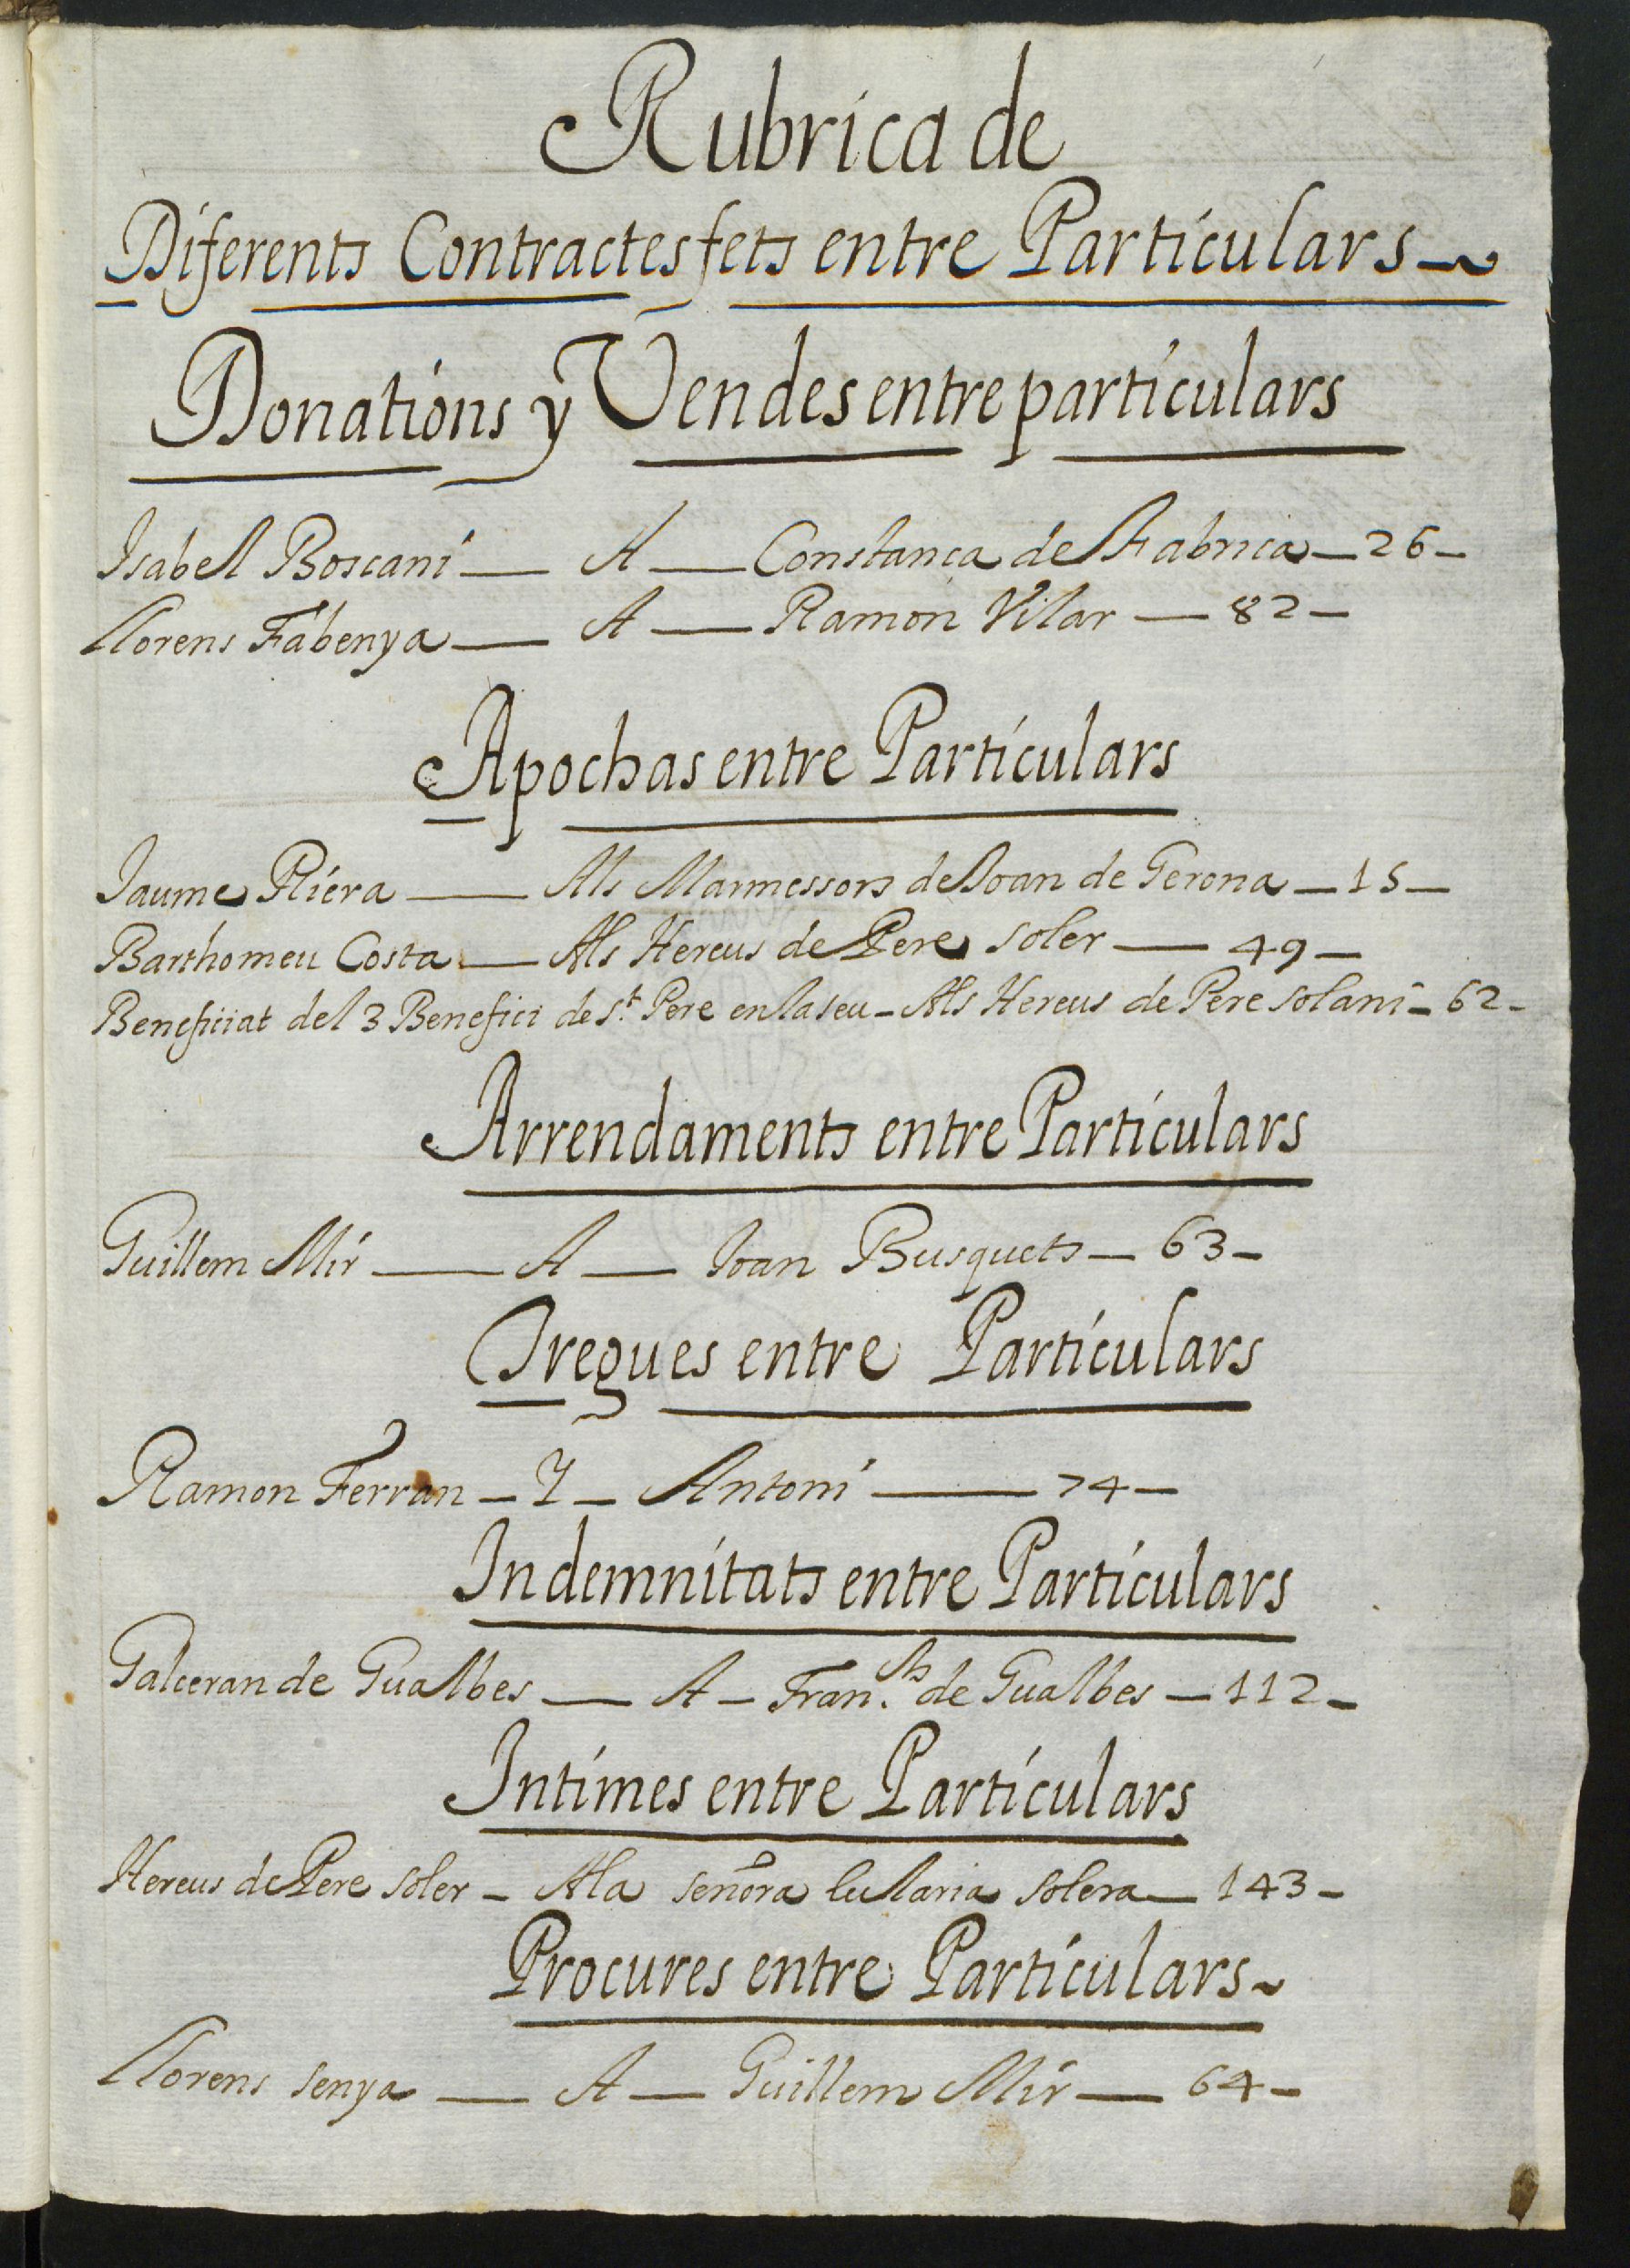 Rubrica de
Diferents Contractes fets entre Particulars
Donations y Vendes entre particulars
Isabel Boscani — A — Constança de Fabrica — 26 —
Llorens Fabenya — A — Ramon Vilar — 82 —
Apochas entre Particulars
Jaume Riera — Als Marmessors de Joan de Gerona — 15 —
Barthomeu Costa — Als Hereus de Pere Soler — 49 —
Beneficiat del 3 Benefici de St. Pere en la seu — Als Hereus de Pere Solani — 62 —
Arrendaments entre Particulars
Guillem Mir — A — Joan Busquets — 63 —
Tregues entre Particulars
Ramon Ferran — Y — Antoni — 74 —
Indemnitats entre Particulars
Galceran de Gualbes — A — Fran.ch de Gualbes — 112 —
Intimes entre Particulars
Hereus de Pere Soler — A la señora Eulària Solera — 143 —
Procures entre Particulars
Llorens Senya — A — Guillem Mir — 64 —